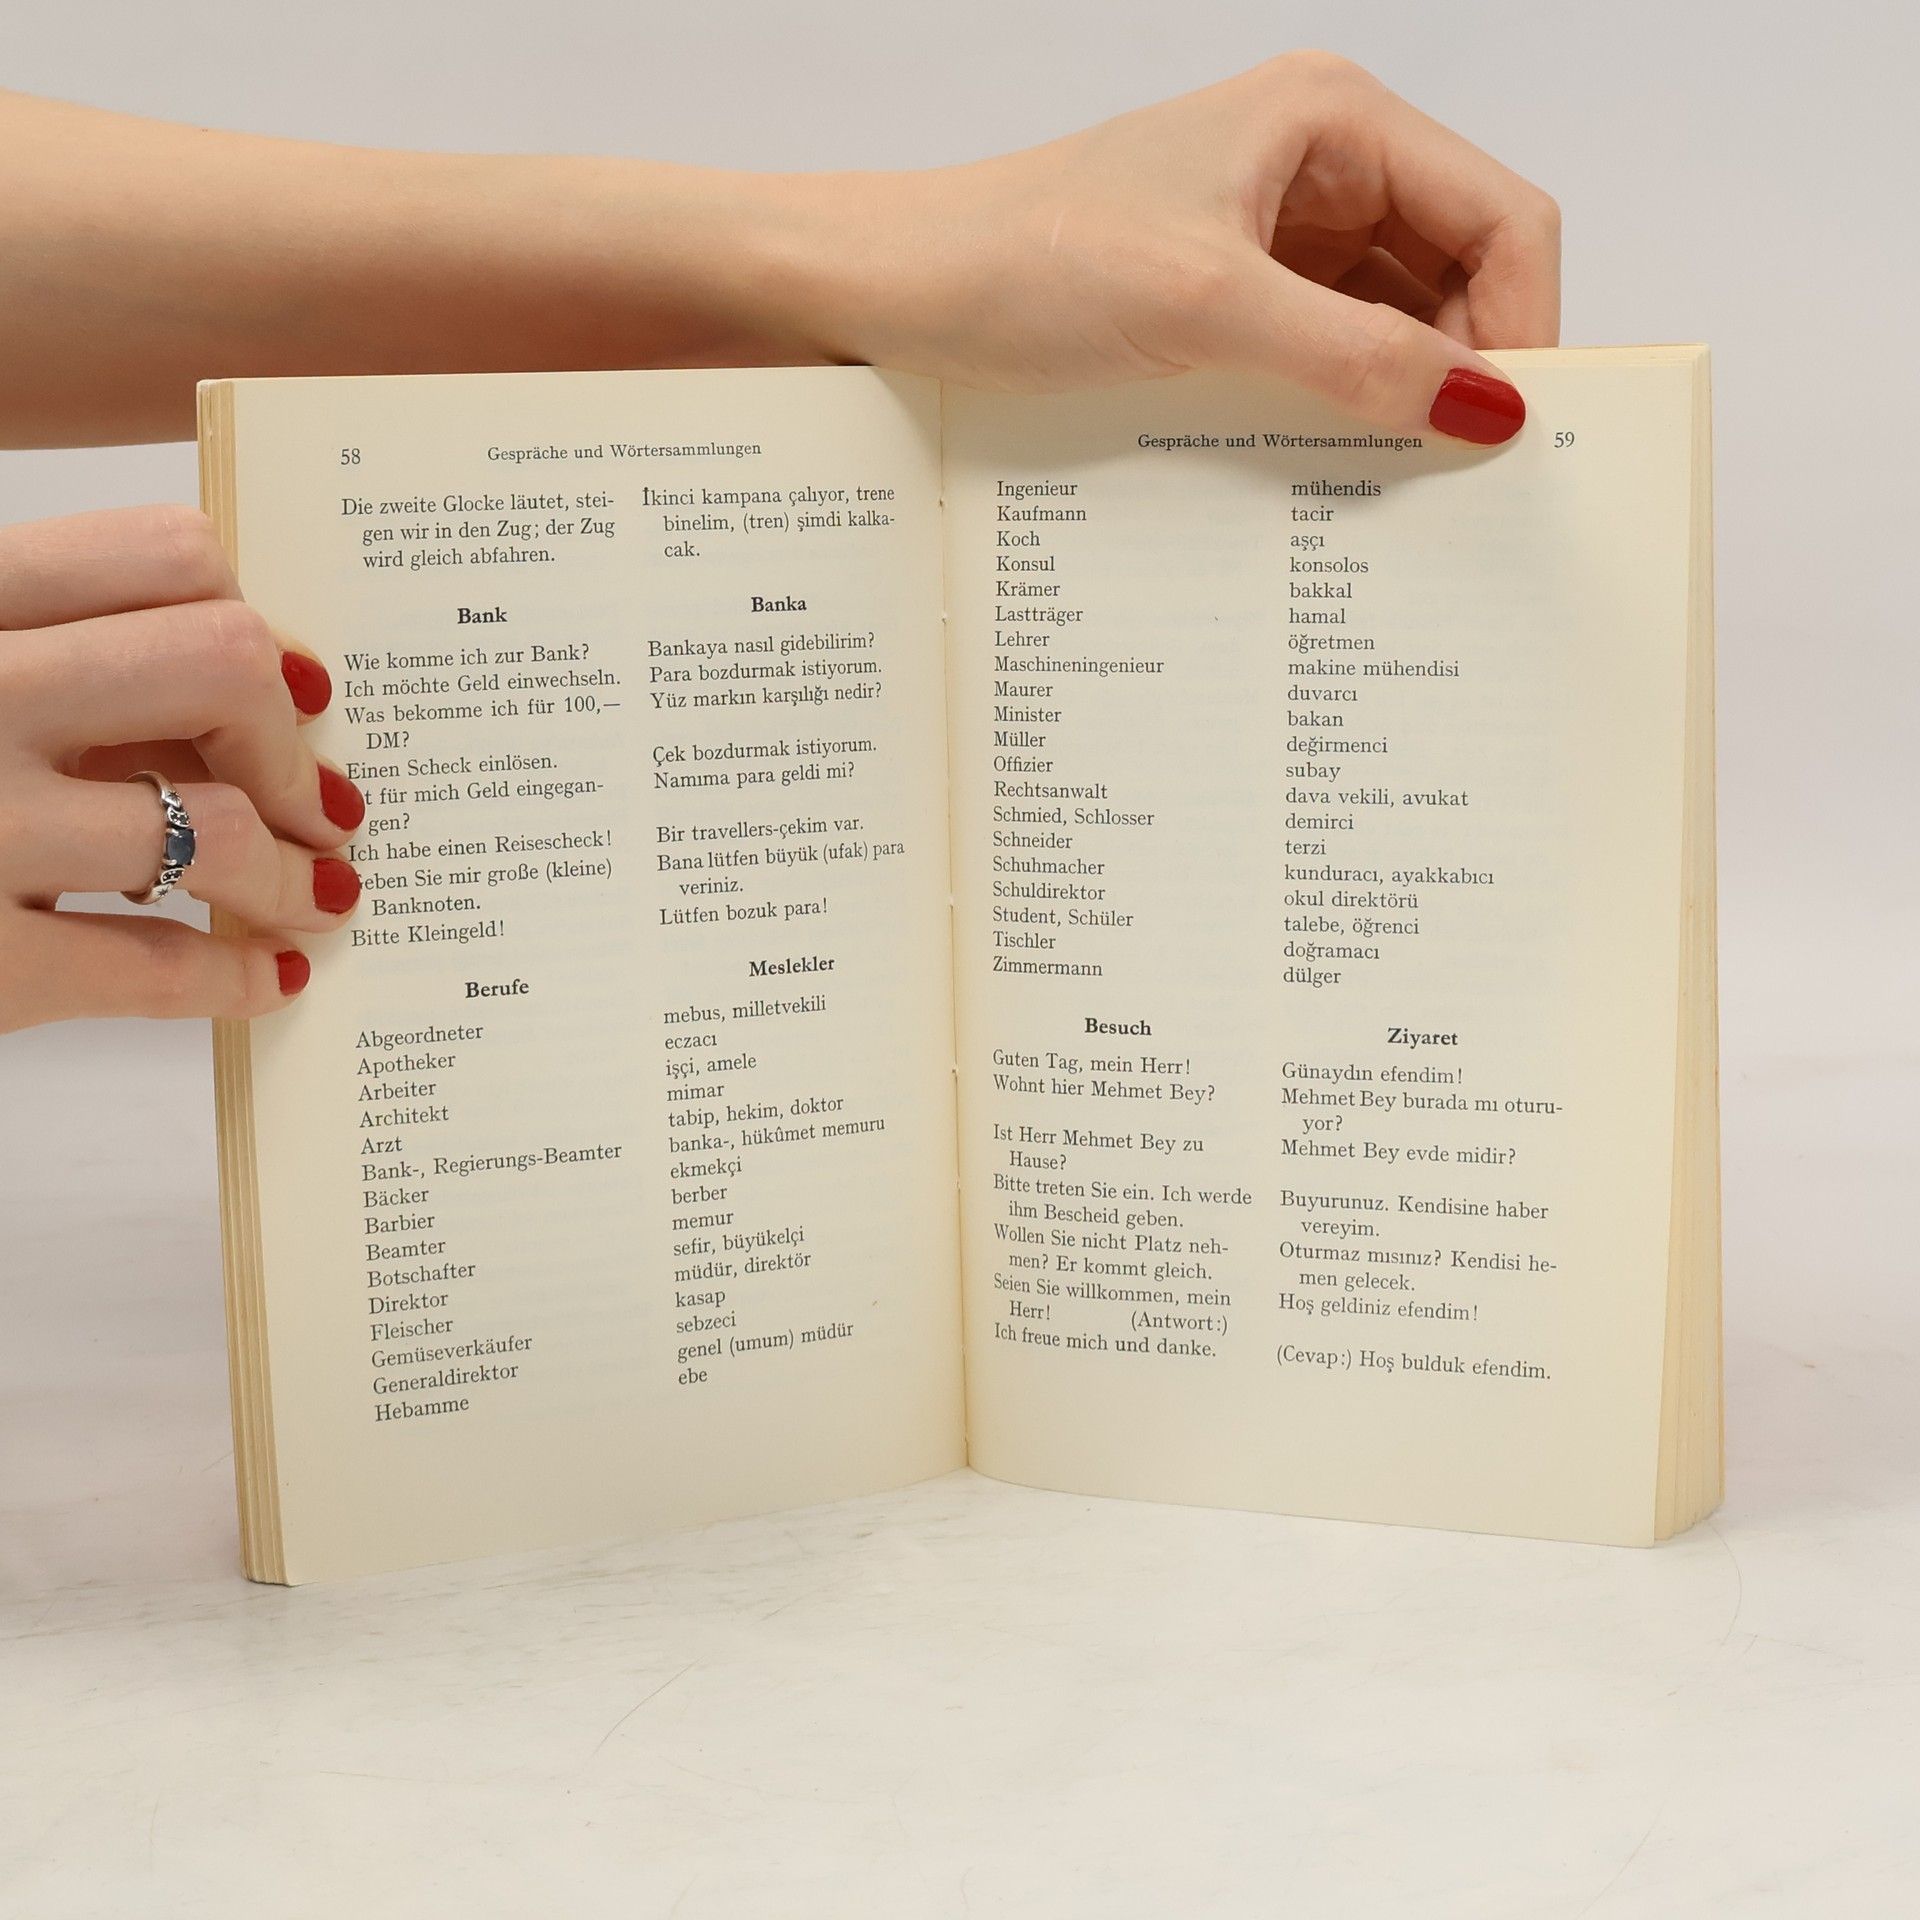 58
Gespräche und Wörtersammlungen
Die zweite Glocke läutet, stei-
gen wir in den Zug; der Zug
wird gleich abfahren.
İkinci kampana çalıyor, trene
binelim, (tren) şimdi kalka-
cak.
Bank
Wie komme ich zur Bank?
Ich möchte Geld einwechseln.
Was bekomme ich für 100,—
DM?
Einen Scheck einlösen.
für mich Geld eingegan-
gen?
Ich habe einen Reisescheck!
Sie mir große (kleine)
Banknoten.
Bitte Kleingeld!
Banka
Bankaya nasıl gidebilirim?
Para bozdurmak istiyorum.
Yüz markın karşılığı nedir?
Çek bozdurmak istiyorum.
Namıma para geldi mi?
Bir travellers-çekim var.
Bana lütfen büyük (ufak) para
veriniz.
Lütfen bozuk para!
Berufe
Abgeordneter
Apotheker
Arbeiter
Architekt
Arzt
Bank-, Regierungs-Beamter
Bäcker
Barbier
Beamter
Botschafter
Direktor
Fleischer
Gemüseverkäufer
Generaldirektor
Hebamme
Meslekler
mebus, milletvekili
eczacı
işçi, amele
mimar
tabip, hekim, doktor
banka-, hükûmet memuru
ekmekçi
berber
memur
sefir, büyükelçi
müdür, direktör
kasap
sebzeci
genel (umum) müdür
ebe
Gespräche und Wörtersammlungen
59
Ingenieur
Kaufmann
Koch
Konsul
Krämer
Lastträger
Lehrer
Maschineningenieur
Maurer
Minister
Müller
Offizier
Rechtsanwalt
Schmied, Schlosser
Schneider
Schuhmacher
Schuldirektor
Student, Schüler
Tischler
Zimmermann
mühendis
tacir
aşçı
konsolos
bakkal
hamal
öğretmen
makine mühendisi
duvarcı
bakan
değirmenci
subay
dava vekili, avukat
demirci
terzi
kunduracı, ayakkabıcı
okul direktörü
talebe, öğrenci
doğramacı
dülger
Besuch
Guten Tag, mein Herr!
Wohnt hier Mehmet Bey?
Ist Herr Mehmet Bey zu
Hause?
Bitte treten Sie ein. Ich werde
ihm Bescheid geben.
Wollen Sie nicht Platz neh-
men? Er kommt gleich.
Seien Sie willkommen, mein
Herr! (Antwort:)
Ich freue mich und danke.
Ziyaret
Günaydın efendim!
Mehmet Bey burada mı oturu-
yor?
Mehmet Bey evde midir?
Buyurunuz. Kendisine haber
vereyim.
Oturmaz mısınız? Kendisi he-
men gelecek.
Hoş geldiniz efendim!
(Cevap:) Hoş bulduk efendim.